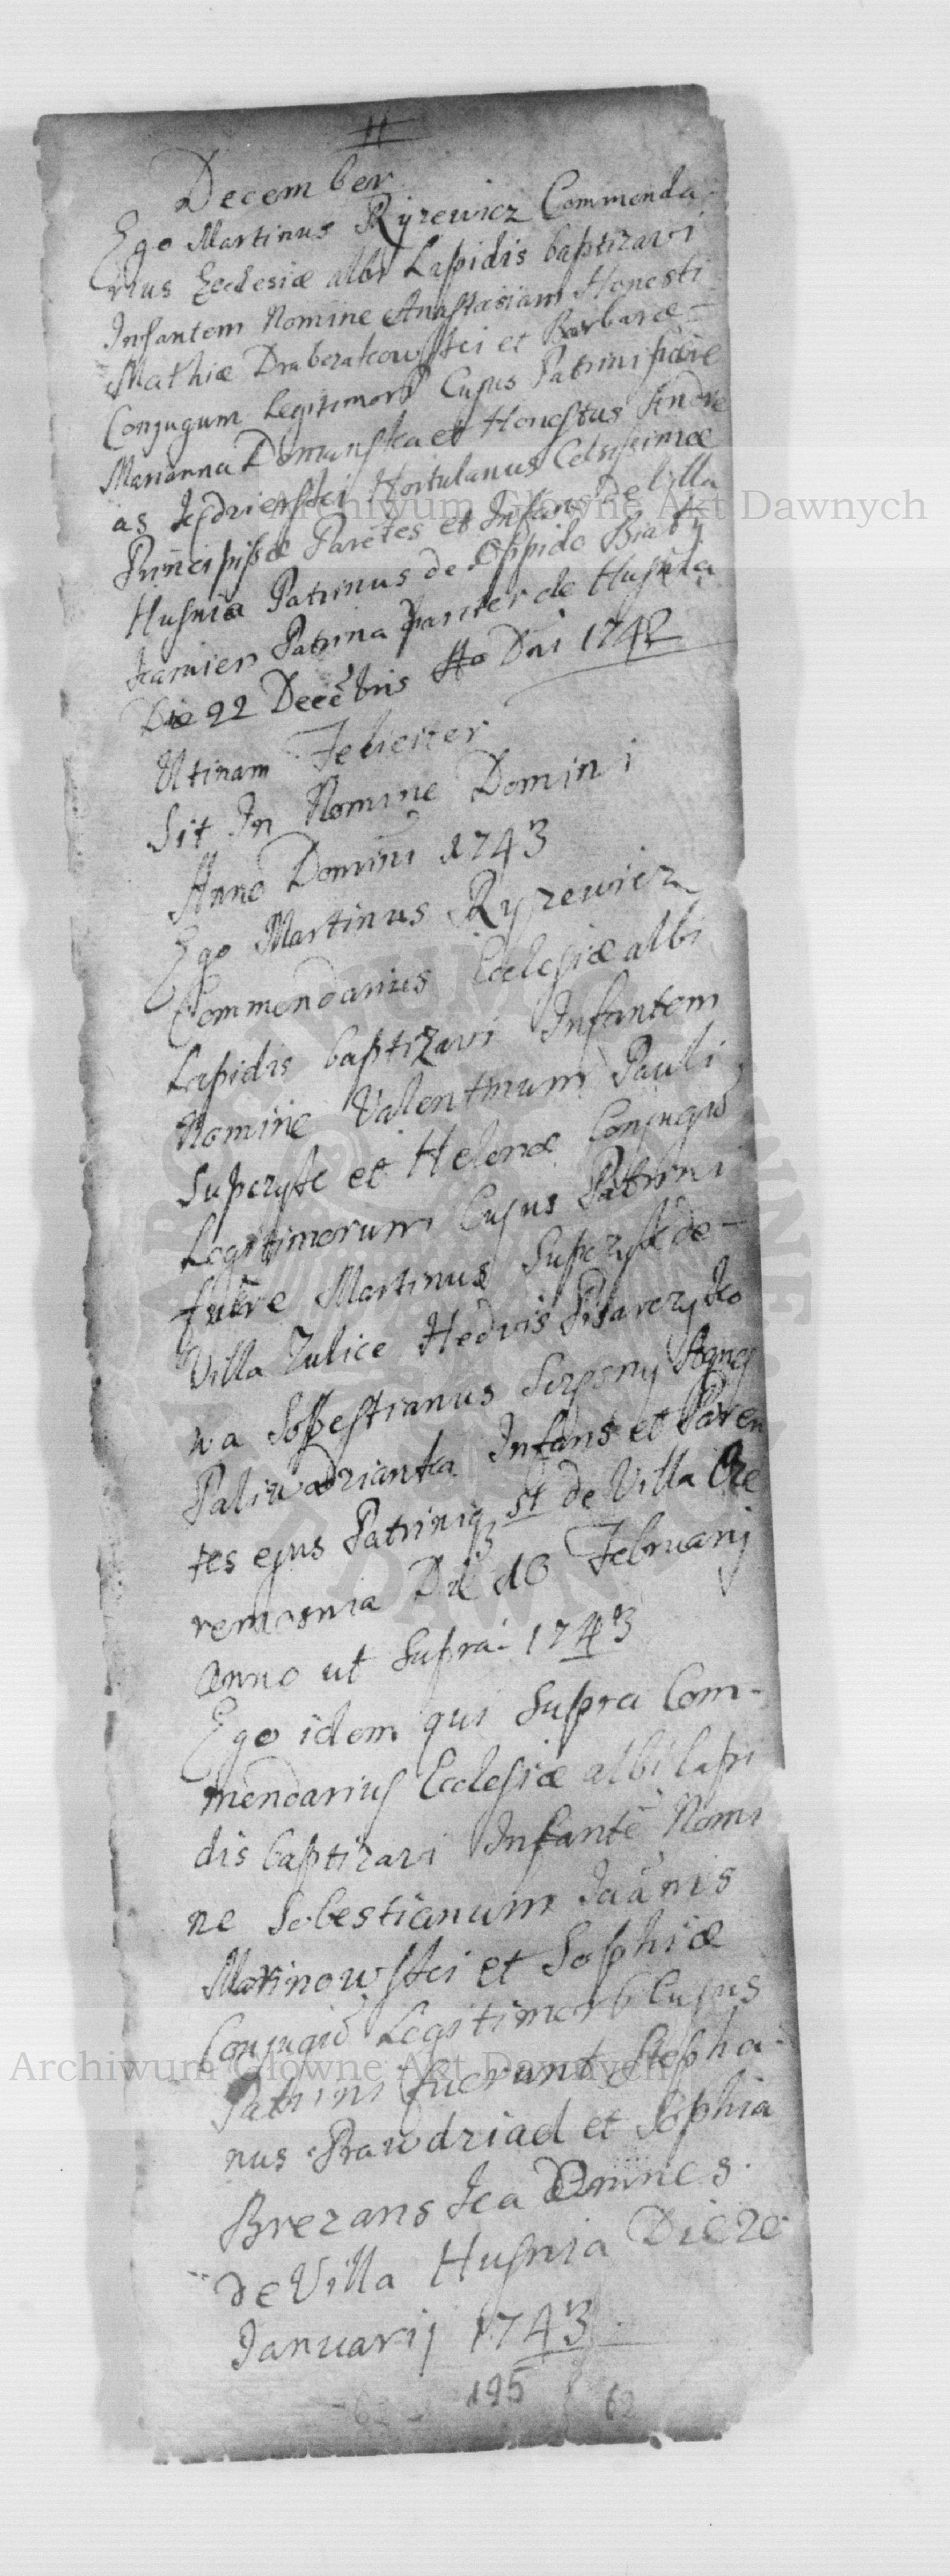 December
Ego Martinus Ryzewicz Commenda-
rius Ecclesiæ albi Lapidis baptizavi
Infantem Nomine Anastasiam Honesti
Mathiæ et Barbaræ
Conjugum Legitimor Cujus Patrini fuere
Marianna Domanska et Honestus Andre
as Hortulanus Celsissimæ
Principissæ Parētes et Infans de Villa
Husnia Patrinus de Oppido Biały
kamien Patrina pariter de Husnia
Die 22 Decēbris Ao Dni 1742
Utinam Feliciter
Sit In Nomine Domini
Anno Domini 1743
Ego Martinus Ryzewicz
Commendarius Ecclesiæ albi
Lapidis baptizavi Infantem
Nomine Valentinum Pauli
et Helenæ Conjugū
Legitimorum Cujus Patrini
fuēre Martinus de
Villa Zulice Hedvis Pisarczyko
wa Sobestianus Agnes
Infans et Paren
tes ejus Patriniq; st de Villa Cze
remosnia Die 16 Februarij
Anno ut Supra 1743
Ego idem qui Supra Com-
mendarius Ecclesiæ albi Lapi
dis baptizavi Infantē Nomi
ne Sebestianum Joānis
Marinowski et Sophiæ
Conjugū Legitimor Cujus
Patrini fuerunt Stepha-
nus Prawdziad et Sophia
Brezanska Omnes
de Villa Husnia Die 20
Januarij 1743
195
62
Archiwum Główne Akt Dawnych
Archiwum Główne Akt Dawnych